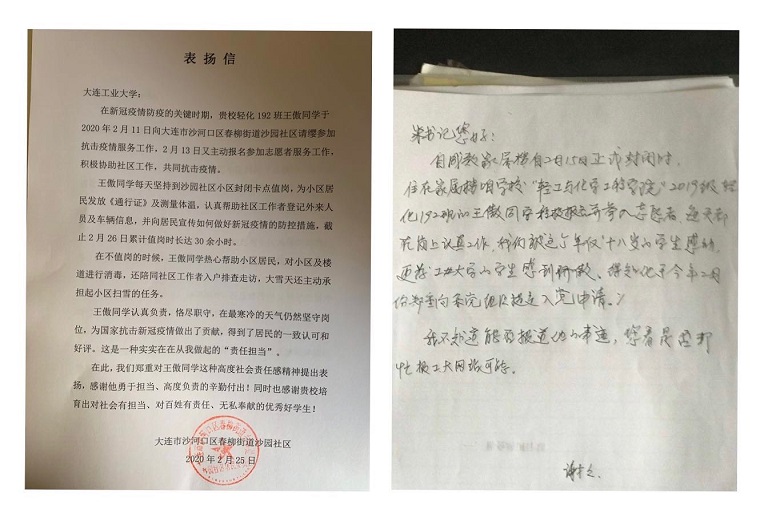 表扬信
大连工业大学：
在新冠疫情防疫的关键时期，贵校轻化192班王傲同学于
2020年2月11日向大连市沙河口区春柳街道沙园社区请缨参加
抗击疫情服务工作，2月13日又主动报名参加志愿者服务工作，
积极协助社区工作，共同抗击疫情。
王傲同学每天坚持到沙园社区小区封闭卡点值岗，为小区居
民发放《通行证》及测量体温，认真帮助社区工作者登记外来人
员及车辆信息，并向居民宣传如何做好新冠疫情的防控措施，截
止2月26日累计值岗时长达30余小时。
在不值岗的时候，王傲同学热心帮助小区居民，对小区及楼
道进行消毒，还陪同社区工作者入户排查走访，大雪天还主动承
担起小区扫雪的任务。
王傲同学认真负责，恪尽职守，在最寒冷的天气仍然坚守岗
位，为国家抗击新冠疫情做出了贡献，得到了居民的一致认可和
好评。这是一种实实在在从我做起的“责任担当”。
在此，我们郑重对王傲同学这种高度社会责任感精神提出表
扬，感谢他勇于担当、高度负责的辛勤付出！同时也感谢贵校培
育出对社会有担当、对百姓有责任、无私奉献的优秀好学生！
大连市沙河口区春柳街道沙园社区
2020年2月25日
书记您好：
家属楼自2月15日正式封闭时，
住在家属楼咱学校“轻工与化学工程学院”2019级轻
化192班的王傲同学积极报名并参入志愿者，每天都
在岗上认真工作，我们都被这个年仅十八岁的学生感动，
更为工大的学生感到骄傲、得知他于今年2月
份郑重向学院组织提过入党申请。
我不知道能否报道他的事迹，您看是否帮
忙 工大网 可能。
谢